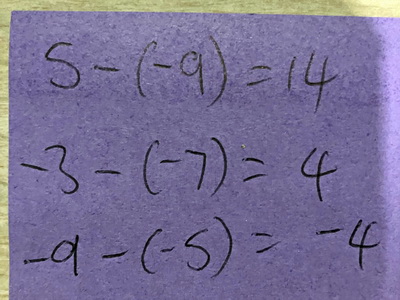 5-(-9)=14
-3-(-7)=4
-9-(-5)=-4